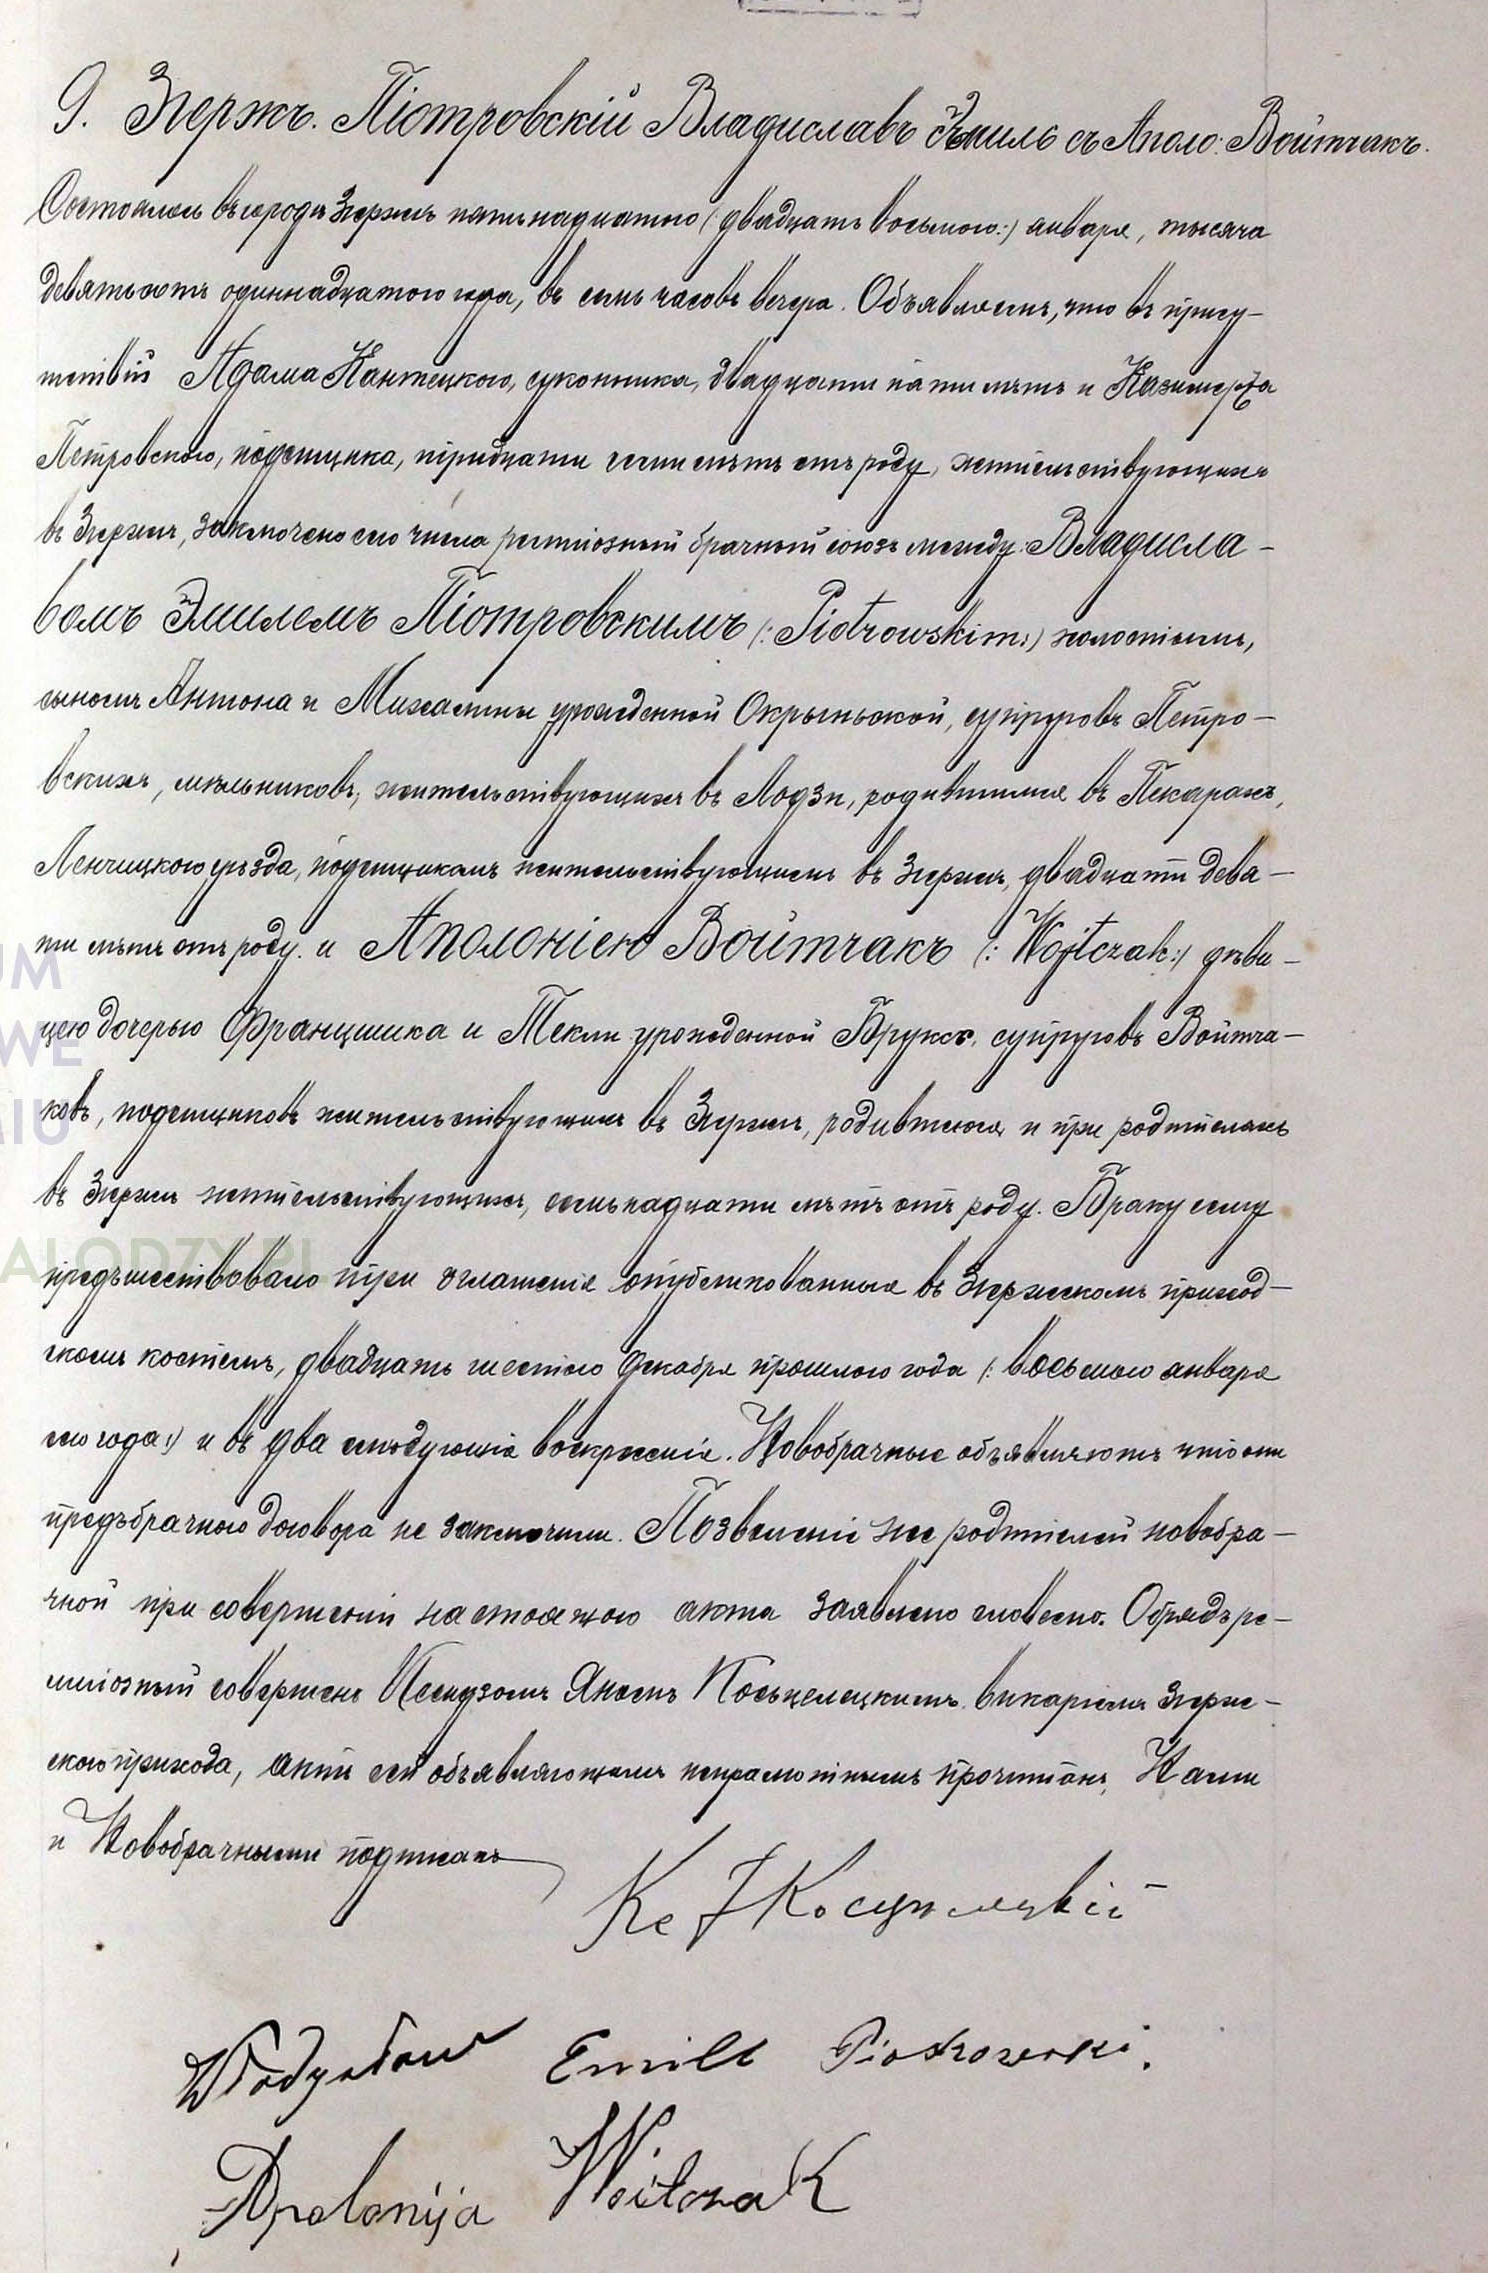 9. Згержъ. Піотровскій Владиславъ Эмиль съ Аполо: Войтчакъ.
Состоялось въ городѣ Згержѣ пятьнадцатого (двадцать восьмого:) января, тысяча
девятьсотъ одиннадцатого года, въ семь часовъ вечера. Объявляемъ, что въ прису-
тствіи Адама Кантецкого, суконника, двадцати пяти лѣтъ и Казимержа
Петровского, поденщика, тридцати семи лѣтъ отъ роду, жительствующихъ
въ Згержѣ, заключено сего числа религіозный брачный союзъ между: Владисла-
вомъ Эмилемъ Піотровскимъ (: Piotrowskim:) холостымъ,
сыномъ Антона и Михалины урожденной Окрыньской, супруговъ Петро-
вскихъ, мѣльниковъ, жительствующихъ въ Лодзи, родившимся въ Пекарахъ,
Ленчицкого уѣзда, поденщикомъ жительствующимъ въ Згержѣ, двадцати девя-
ти лѣтъ отъ роду. и Аполоніею Войтчакъ (: Wojtczak:) дѣви-
цею дочерью Францишка и Текли урожденной Брукс, супруговъ Войтча-
ковъ, поденщиковъ жительствующихъ въ Згержѣ, родившеюся и при родителяхъ
въ Згержѣ жительствующихъ, семьнадцати лѣтъ отъ роду. Браку сему
предъшествовало три оглашенія опубликованныя въ Згержскомъ приход-
скомъ костелѣ, двадцать шестого декабря прошлого года (: восьмого января
сего года:) и въ два слѣдующія воскресенія. Новобрачные объявляютъ что они
предъбрачного договора не заключили. Позволеніе же родителей новобра-
чной при совершеніи настоящого акта заявлено словесно. Обрядъ ре-
лигіозный совершенъ Ксендзомъ Яномъ Косьцелецкимъ викаріемъ Згерж-
ского прихода, актъ сей объявляющимъ неграмотнымъ прочитанъ, Нами
и Новобрачными подписанъ
Władysław Emill Piotrowski.
Apolonija Woitczak